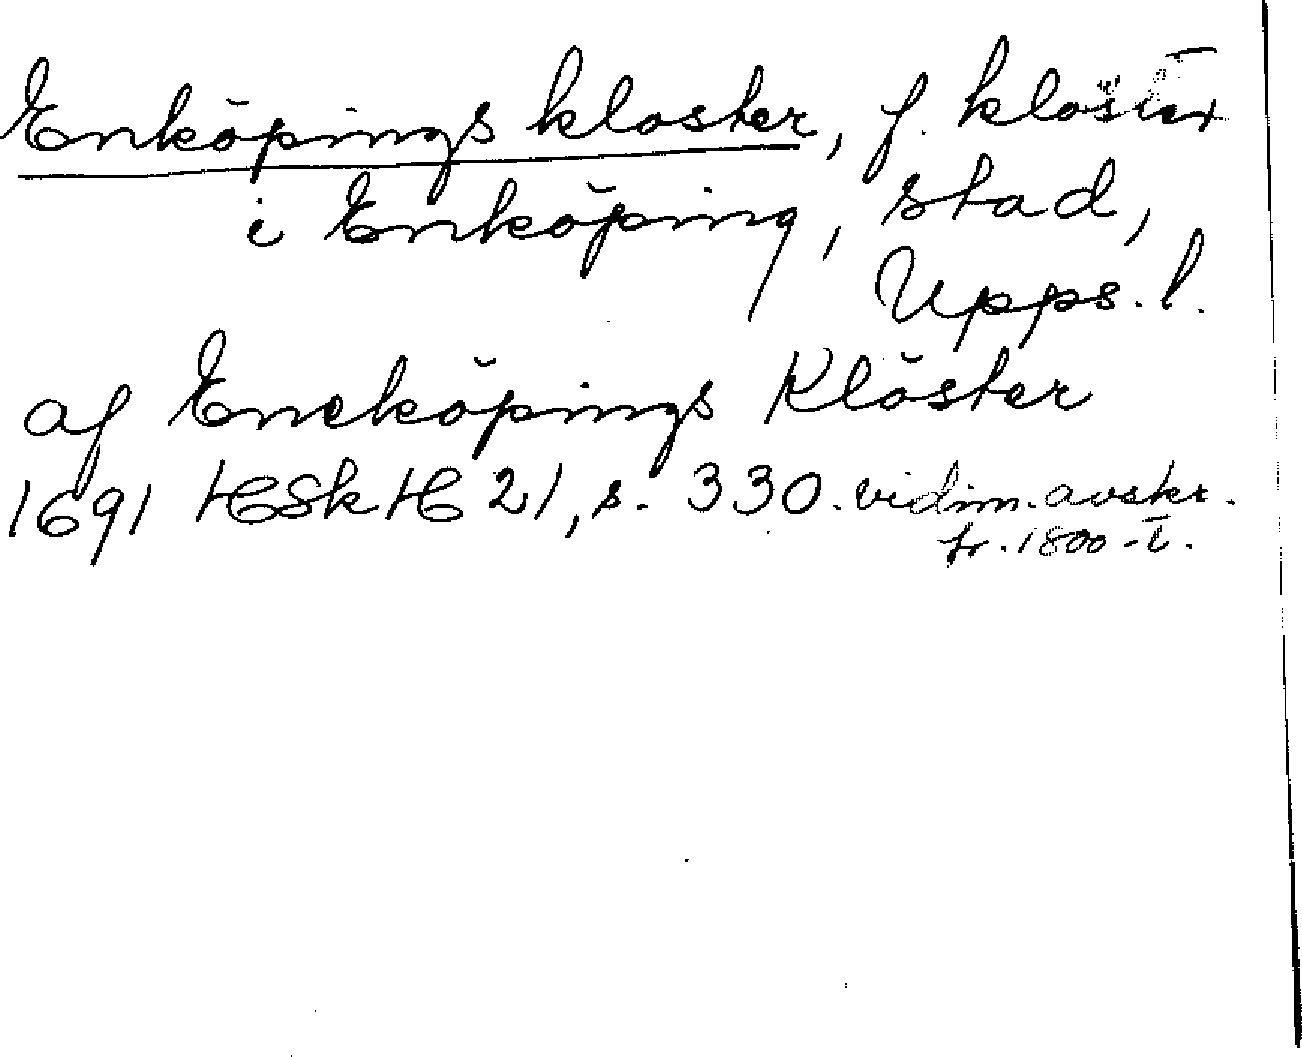 Enköpings kloster, f. kloster
i Enköping, stad,
Upps. l.
af Eneköpings Klöster
1691 HSk H 21, s. 330. vidim. avskr.
fr. 1800-t.